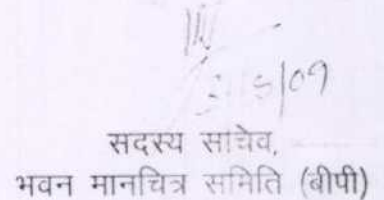 सदस्य साचेव,
भवन मानचित्र समिति (बीपी)